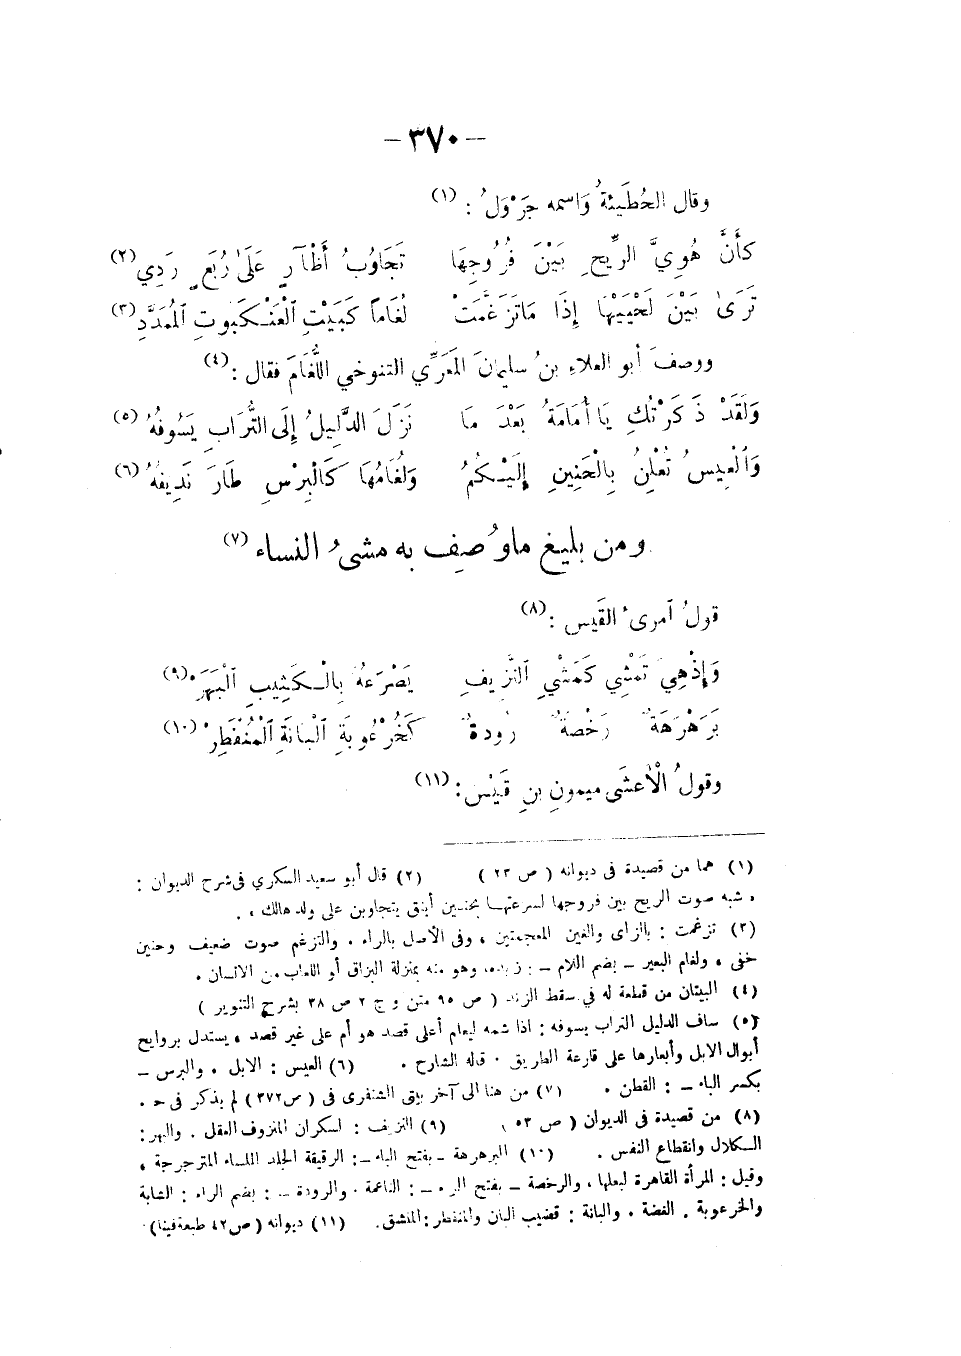 — ٣٧٠ —
وقال الحُطَيئةُ وَاسمه جَرْوَلُ : (١)
كأَنَّ هُوِيَّ الرِّيحِ بَيْنَ فُرُوجِهَا تَجَاوُبُ أَظْآرٍ عَلَىٰ رُبَعٍ رَدِي (٢)
تَرَىٰ بَيْنَ لَحْيَيْهَا إِذَا مَاتَزَغَّمَتْ لُغَاماً كَبَيْتِ ٱلْعَنْكَبوتِ ٱلْمُمَدَّدِ (٣)
ووصفَ أبو العلاءِ بنُ سليمانَ المَعَرِّي التنوخي اللُّغَامَ فقال : (٤)
وَلَقَدْ ذَكَرْتُكِ يَا أُمَامَةُ بَعْدَ مَا نَزَلَ الدَّلِيلُ إِلَى التُّرَابِ يَسُوفُهُ (٥)
وَٱلْعِيسُ تُعْلِنُ بِالْحَنِينِ إِلَيْكُمُ وَلُغَامُهَا كَالْبِرْسِ طَارَ نَدِيفُهُ (٦)
ومن بليغ ماوُصِف به مشىُ النساء (٧)
قولُ ٱمرىءِ القَيس : (٨)
وَإِذْهِيَ تَمْشِي كَمَشْيِ ٱلنَّزِيفِ يَصْرَعُهُ بِالْكَثِيبِ ٱلْبَهَرْ (٩)
بَرَهْرَهَةٌ رَخْصَةٌ رُودةٌ كَخُرْعُوبَةِ ٱلْبَانَةِ ٱلْمُنْفَطِرْ (١٠)
وقولُ الْأعشَى ميمونِ بنِ قَيْس : (١١)
(١) هما من قصيدة فى ديوانه ( ص ٢٣ ) (٢) قال أبو سعيد السكري فى شرح الديوان :
« شبه صوت الريح بين فروجها لسرعتها بحنين أينق يتجاوبن على ولد هالك » .
(٣) تزغمت : بالزاى والغين المعجمتين ، وفى الأصل بالراء . والتزغم صوت ضعيف وحنين
خفى ، ولغام البعير ــ بضم اللام ــ : زبده، وهو منه بمنزلة البزاق أو اللعاب من الانسان .
(٤) البيتان من قطعة له في سقط الزند ( ص ٩٥ متن و ج ٢ ص ٣٨ بشرح التنوير )
(٥) ساف الدليل التراب يسوفه : اذا شمه ليعلم أعلى قصد هو أم على غير قصد ، يستدل بروايح
أبوال الابل وأبعارها على قارعة الطريق . قاله الشارح . (٦) العيس : الابل . والبرس ــ
بكسر الباء ــ : القطن . (٧) من هنا الى آخر بيتى الشنفرى فى ( ص ٣٧٢ ) لم يذكر فى ح .
(٨) من قصيدة فى الديوان ( ص ٥٣ ) (٩) النزيف : السكران المنزوف العقل . والبهر :
الكلال وانقطاع النفس . (١٠) البرهرهة ــ بفتح الباء ــ : الرقيقة الجلد الملساء المترجرجة ،
وقيل : المرأة القاهرة لبعلها ، والرخصة ــ بفتح الراء ــ : الناعمة . والرودة ــ : بضم الراء : الشابة
والخرعوبة . الغضة . والبانة : قضيب البان والمنفطر : المنشق. (١١) ديوانه ( ص ٤٢ طبعة فينا )